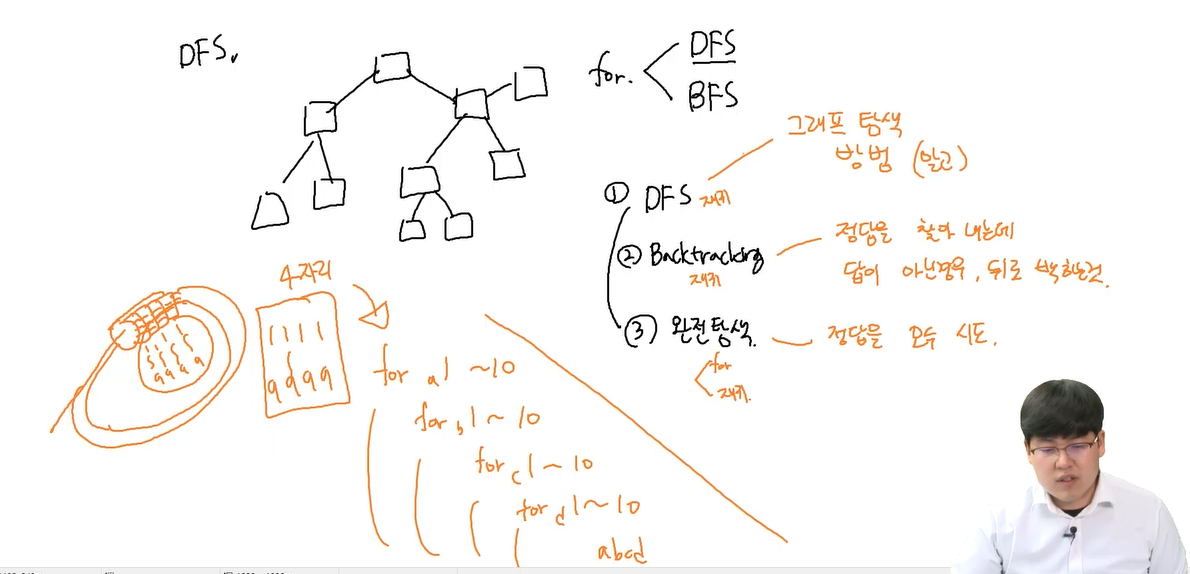 DFS.
for.
DFS
BFS
그래프 탐색
방법 (알고)
① DFS 재귀
② Backtracking
재귀
정답을 찾아 내는데
답이 아닌경우, 뒤로 백하는것.
③ 완전탐색.
for
재귀.
정답을 모두 시도.
4자리
1 1 1 1
9 9 9 9
1 1 1 1
9 9 9 9
for a 1 ~ 10
for b 1 ~ 10
for c 1 ~ 10
for d 1 ~ 10
abcd